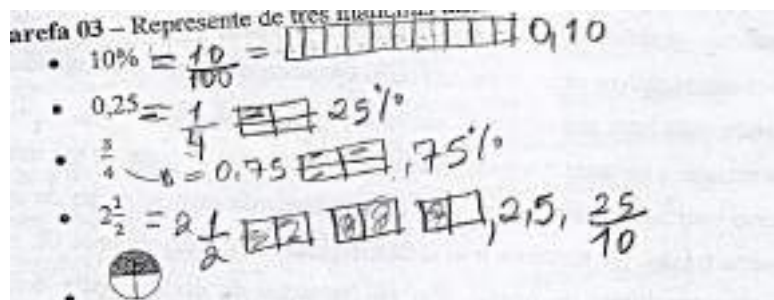 arefa 03 – Represente de três maneiras
10% = 10/100 = 0,10
0,25 = 1/4 25%
3/4 = 0.75 , 75%
2 1/2 = 2 1/2 , 2,5, 25/10